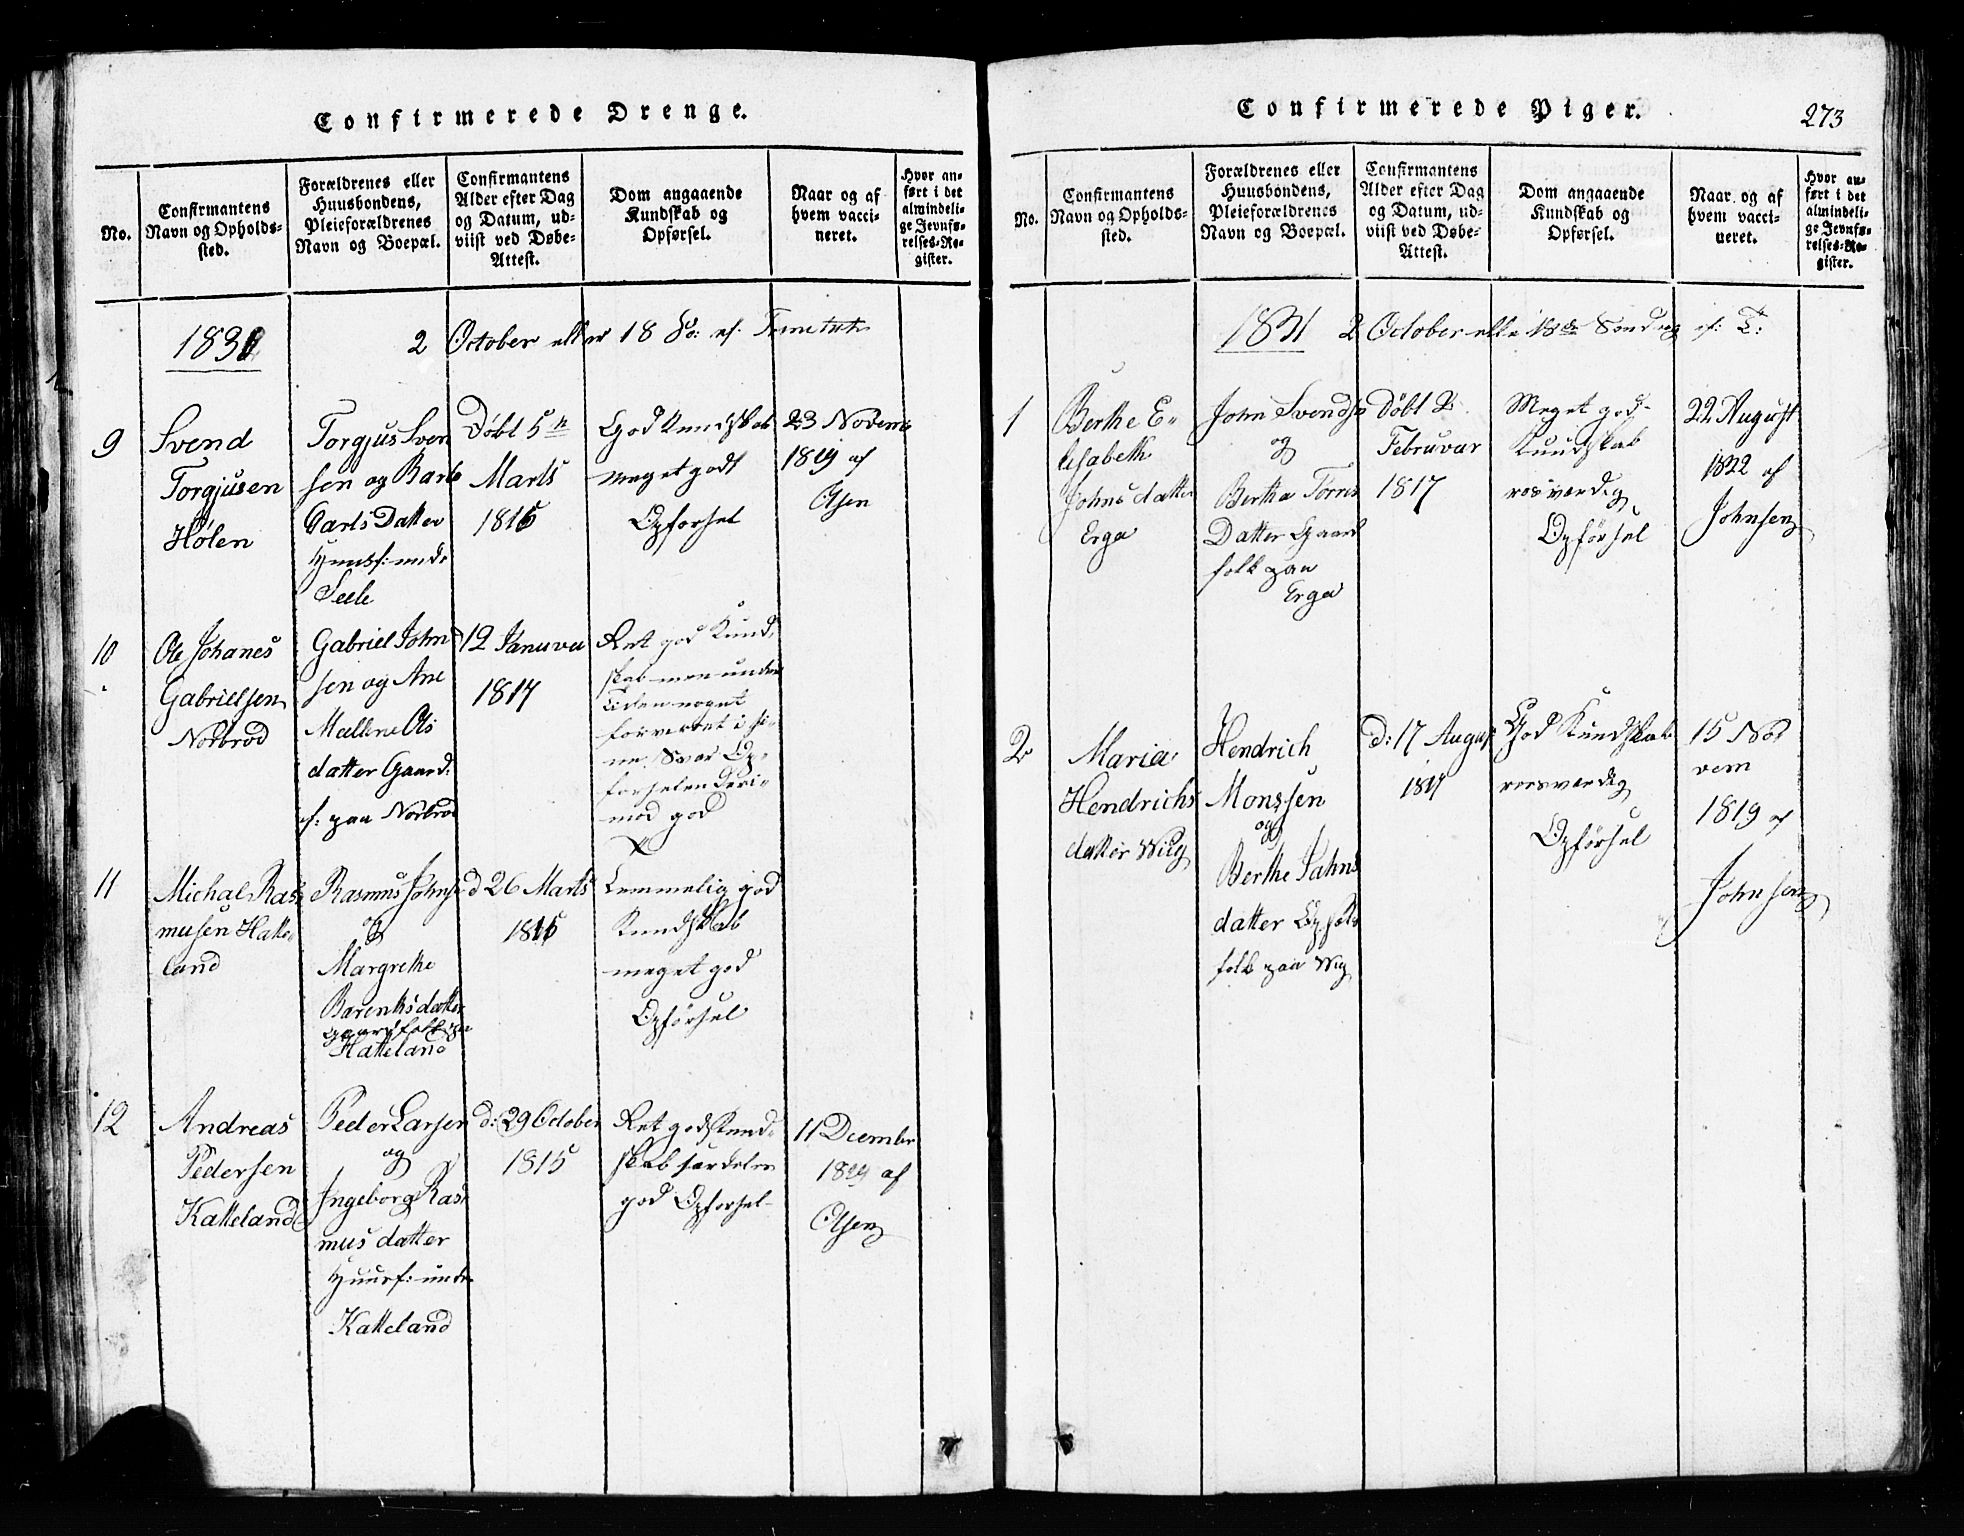 Confirmerede Drenge.
No.
Confirmantens
Navn og Opholds-
sted.
Forældrenes eller
Huusbondens,
Pleieforældrenes
Navn og Boepæl.
Confirmantens
Alder efter Dag
og Datum, ud-
viist ved Døbe-
Attest.
Dom angaaende
Kundskab og
Opførsel.
Naar og af
hvem vacci-
neret.
Hvor an-
ført i det
almindeli-
ge Jevnfø-
relses-Re-
gister.
1831
2 October eller 18 So: ef. Trinitatis
9
Svend
Torgjusen
Hølen
Torgjus Sven
sen og Barb
Carls Datter
Huusf: unde
Seele
Døbt 5te
Marts
1816
God Kundskab
meget godt
Opforsel
23 Novem
1819 af
Olsen
10
Ole Johanes
Gabrielsen
Norbrod
Gabriel John
sen og Ane
Mallene Ols
datter Gaard:
f: paa Norbrod
d 12 Januva
1817
Ret god Kund,
skab men under
Tiden noget
forvirret i si-
ne Svar Op-
forselen deri-
mod god
11
Michal Ras
musen Hatte-
land
Rasmus Johnse
og
Margrethe
Barentsdatter
Gaardfolk paa
Hatteland
d 26 Marts
1816
Temmelig god
Kundskab
meget god
Opførsel
12
Andreas
Pedersen
Katteland
Peder Larsen
og
Ingeborg Ras
mus datter
Huusf: unde
Katteland
d: 29 October
1815
Ret god Kund-
skab særdeles
god Opforsel-
11 Decembr
18 af
Olsen
Confirmerede Piger.
273
No.
Confirmantens
Navn og Opholds-
sted.
Forældrenes eller
Huusbondens,
Pleieforældrenes
Navn og Boepæl.
Confirmantens
Alder efter Dag
og Datum, ud-
viist ved Døbe-
Attest.
Dom angaaende
Kundskab og
Opførsel.
Naar og af
hvem vacci-
neret.
Hvor an-
ført i det
almindeli-
ge Jevnfø-
relses-Re-
gister.
1831 2 October elle 18de Søndag ef: T:
1
Berthe E-
lisabeth
Johns datter
Erga
John Svends
og
Bertha Torres
Datter Gaard
folk paa
Erga
Døbt 2
Februvar
1817
Meget god
Kundskab
rosværdig
Opførsel
22 August
1822 af
Johnsen
2
Maria
Hendrichs
datter Wiig
Hendrich
Monssen
og
Berthe Jahns
datter
folk paa Wiig
d: 17 Augus
1817
God Kundskab
rosværdig
Opførsel
15 No
vem
1819 af
Johnsen